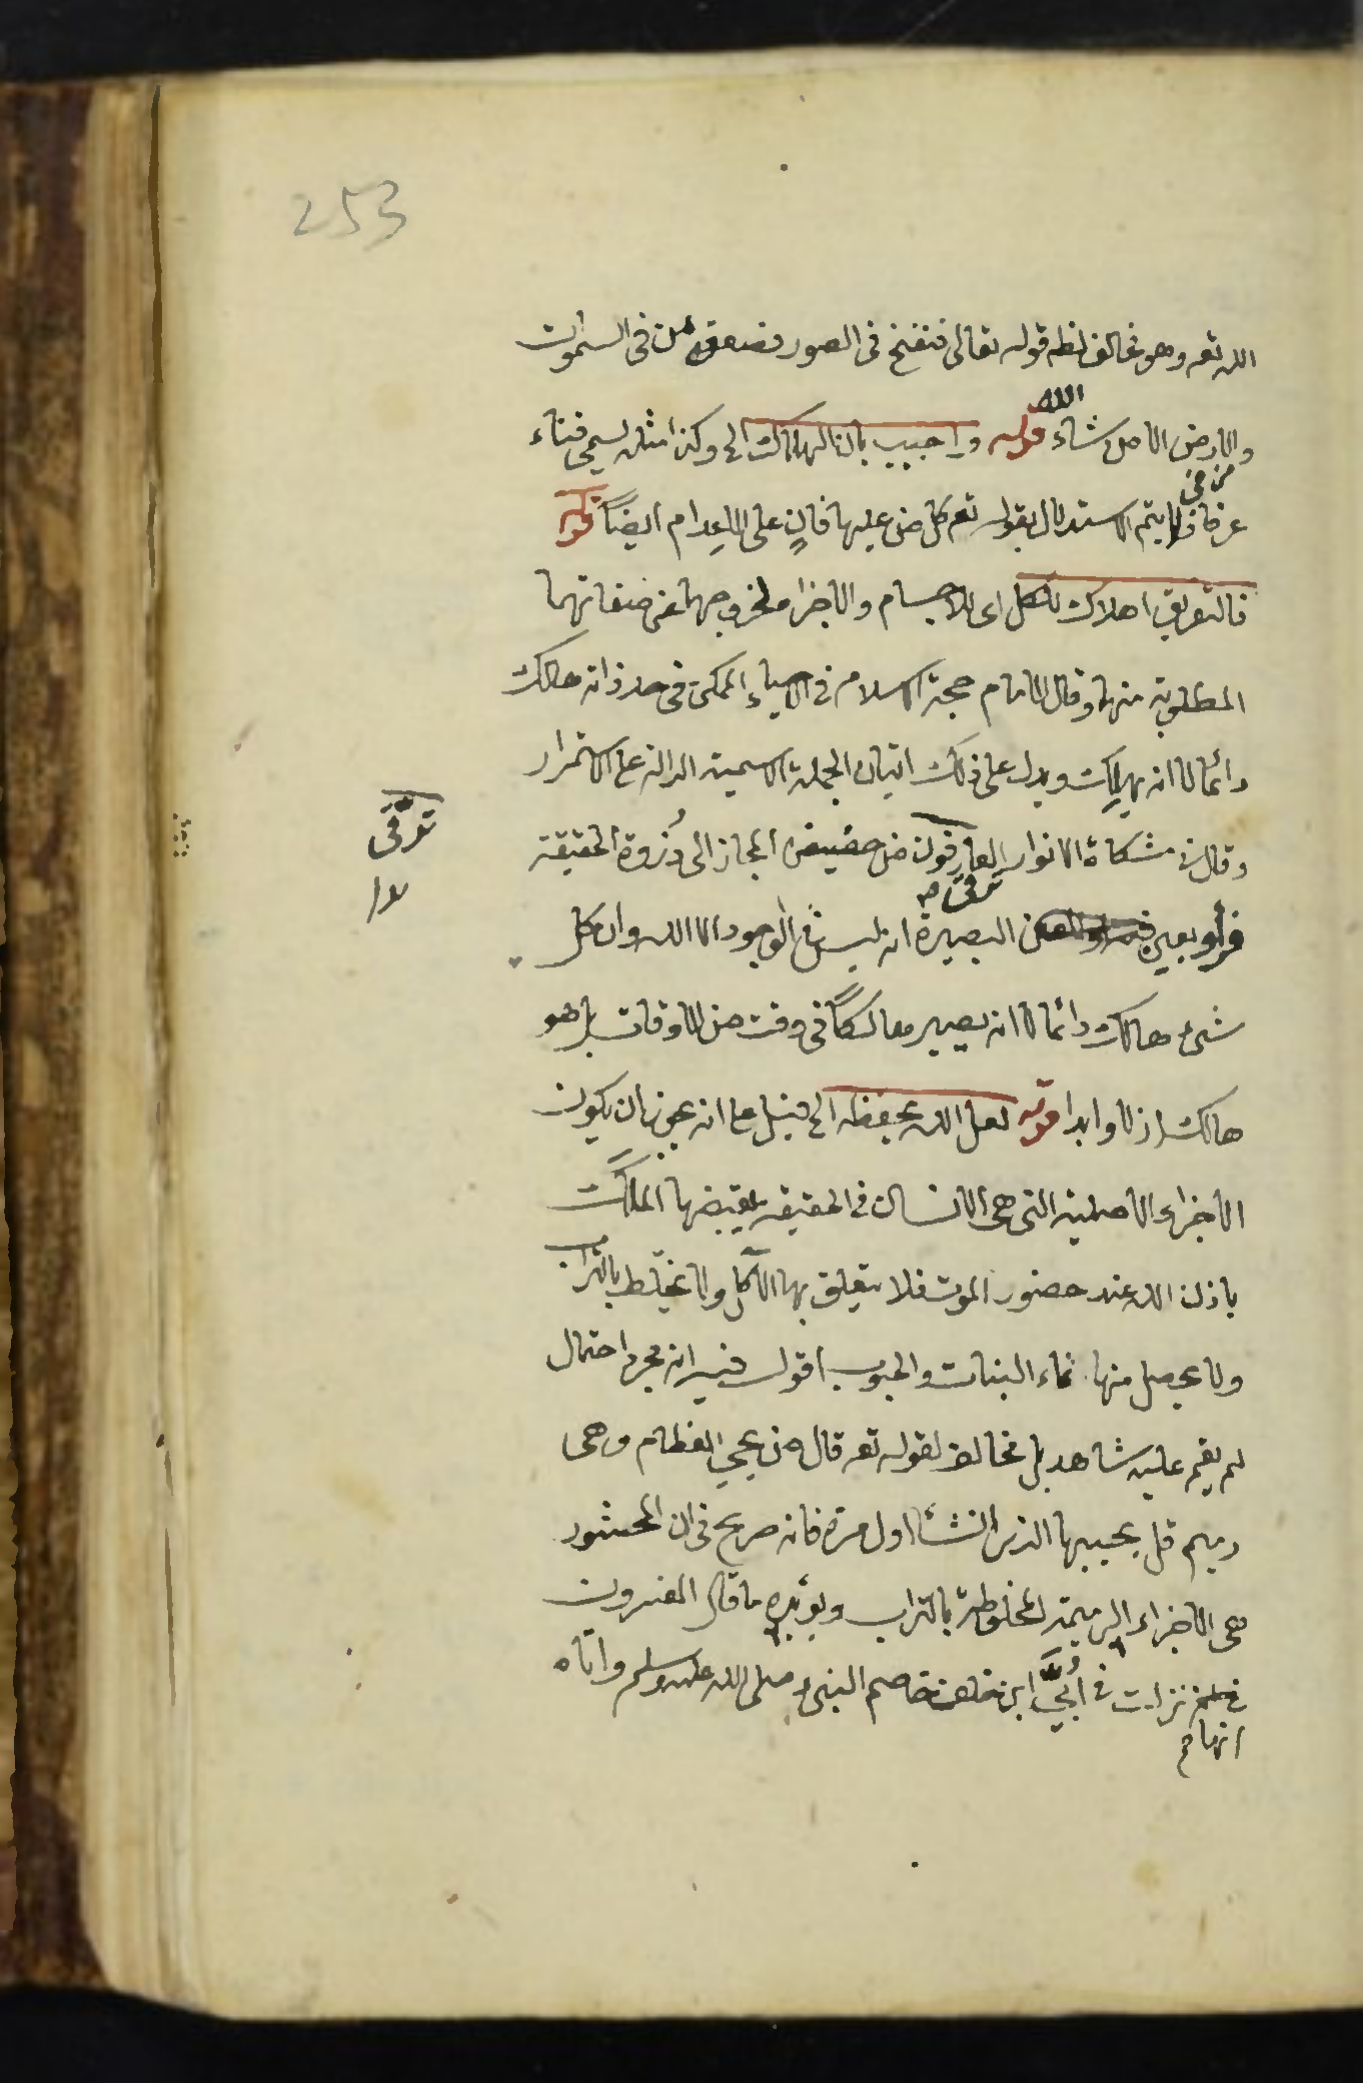 253
الله تعه وهو مخالف لظ قوله تعالى فنفخ فى الصور فصعق من فى السموات
والارض الا من شاء الله قوله واجيب بان الهلاك الى وكذا مثله يسمى فناء
عرفا فلا يتم الاستدلال بقوله تعه كل من عليها فان على الاعدام ايضا قوله
من فى
فالتفريق اهلاك للكل اى للاجسام والاجزاء لخروجها عن صفاتهما
المطلوبة منها وقال الامام حجة الاسلام فى الاحياء الممكن فى حد ذاته هالك
دائما لا انه يهلك ويدل على ذلك اتيان الجملة الاسمية الدالة على الاستمرار
وقال فى مشكاة الانوار العارفون من حضيض المجاز الى ذروة الحقيقة
ترقى
فرأو بعين البصيرة انه ليس فى الوجود الا الله وان كل
ترقى صه
شىء هالك دائما لا انه يصير هالكا فى وقت من الاوقات بل هو
هالك ازلا وابدا قوله لعل الله يحفظه الى قيل على انه يجوز ان يكون
الاجزاء الاصلية التى هى الانسان فى الحقيقة يقبضها الملك
باذن الله عند حضور الموت فلا يتعلق بها الاكل ولا يختلط بالتراب
ولا يحصل منها نماء النبات والحبوب اقول فيه انه مجرد احتمال
لم يقم عليه شاهد بل مخالف لقوله تعه قال من يحيي العظام وهى
رميم قل يحييها الذى انشأ اول مرة فانه صريح فى ان المحشور
هى الاجزاء الرميمة المخلوطة بالتراب ويؤيده ما قال المفسرون
نزلت فى ابي ابن خلف خاصم النبى صلى الله عليه وسلم واتاه
انها